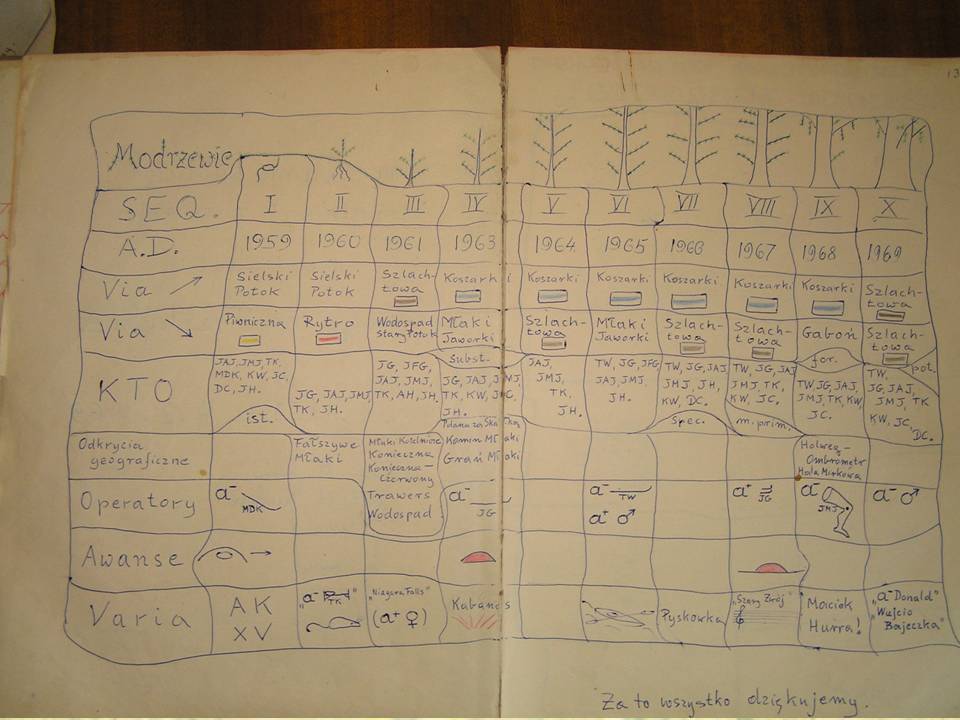 13
Modrzewie
SEQ. I II III IV V VI VII VIII IX X
A.D. 1959 1960 1961 1963 1964 1965 1966 1967 1968 1969
Via
Sielski Potok
Sielski Potok
Szlach-
towa
Koszarki
Koszarki
Koszarki
Koszarki
Koszarki
Koszarki
Szlach-
towa
Via
Piwniczna
Rytro
Wodospad
Stary Potok
Młaki
Jaworki
Szlach-
towa
Młaki
Jaworki
Szlach-
towa
Szlach-
towa
Gaboń
Szlach-
towa
KTO
JAJ, JMJ, TK,
MDK, KW, JC,
DC, JH.
ist.
JG, JAJ, JMJ
TK, JH.
JG, JFG,
JAJ, JMJ,
TK, AH, JH.
subst.
JG, JAJ, JMJ,
TK, KW, JC,
JH.
JAJ,
JMJ,
TK,
JH.
TW, JG, JFG
JAJ, JMJ,
JH.
TW, JG, JAJ
JMJ, JH,
KW, DC.
spec.
TW, JG, JAJ
JMJ, TK,
KW, JC.
m. prim.
for.
TW, JG, JAJ,
JMJ, TK, KW,
JC.
pot.
TW,
JG, JAJ,
JMJ, TK
KW, JC,
DC.
Odkrycia
geograficzne
Fałszywe
Młaki
Młaki Kozielnickie
Konieczna
Konieczna-
Czerwony
Trawers
Wodospad
Polana za Skałką
Komin Młaki
Grań Młaki
Holweg-
Ombrometr
Hala Mirkowa
Operatory
a- MDK
a- JG
a- TW
a+ ♂
a+ JG
a- JMJ
a- ♂
Awanse
Varia
AK
XV
"a- TK"
"Niagara Falls"
(a+ ♀)
Kabanos
Pyskówka
"Szary Zbój"
Maciek
Hurra!
"a- Donald"
"Wujcio
Bajeczka"
Za to wszystko dziękujemy.